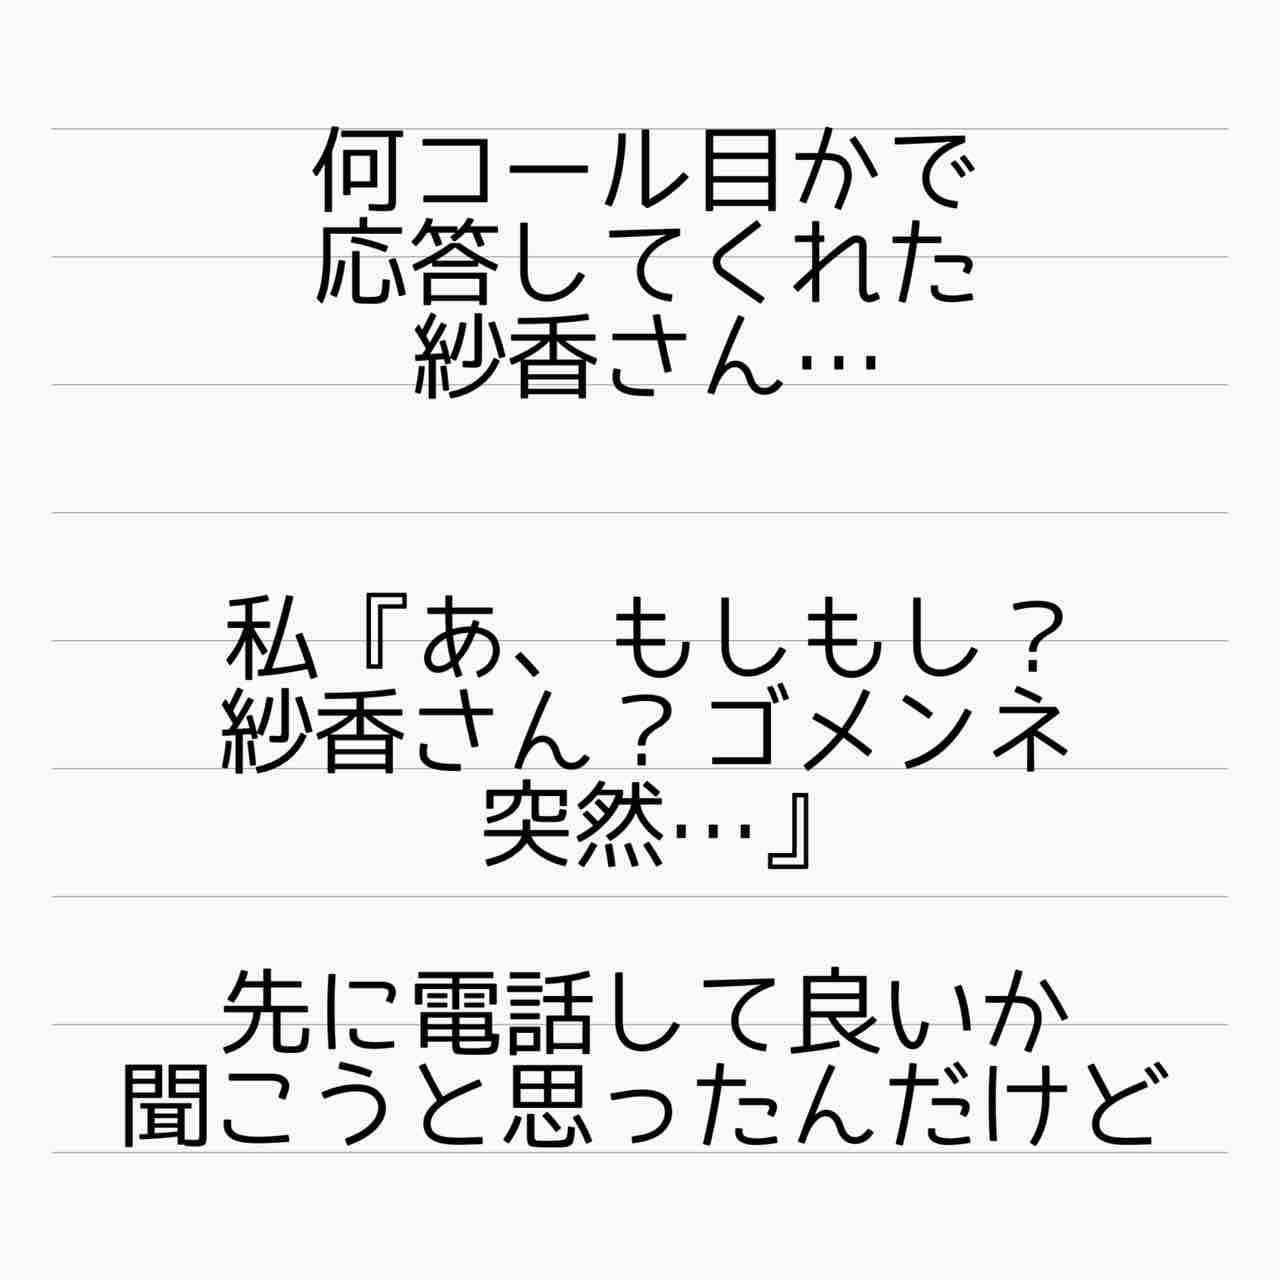 何コール目かで
応答してくれた
紗香さん…
私『あ、もしもし？
紗香さん？ゴメンネ
突然…』
先に電話して良いか
聞こうと思ったんだけど